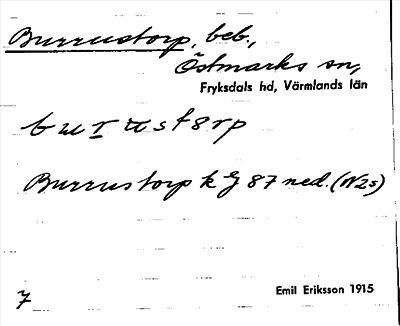 Burrustorp, beb.,
Östmarks sn,
Fryksdals hd, Värmlands län
Burrustorp k J 87 ned. (N2s)
7
Emil Eriksson 1915